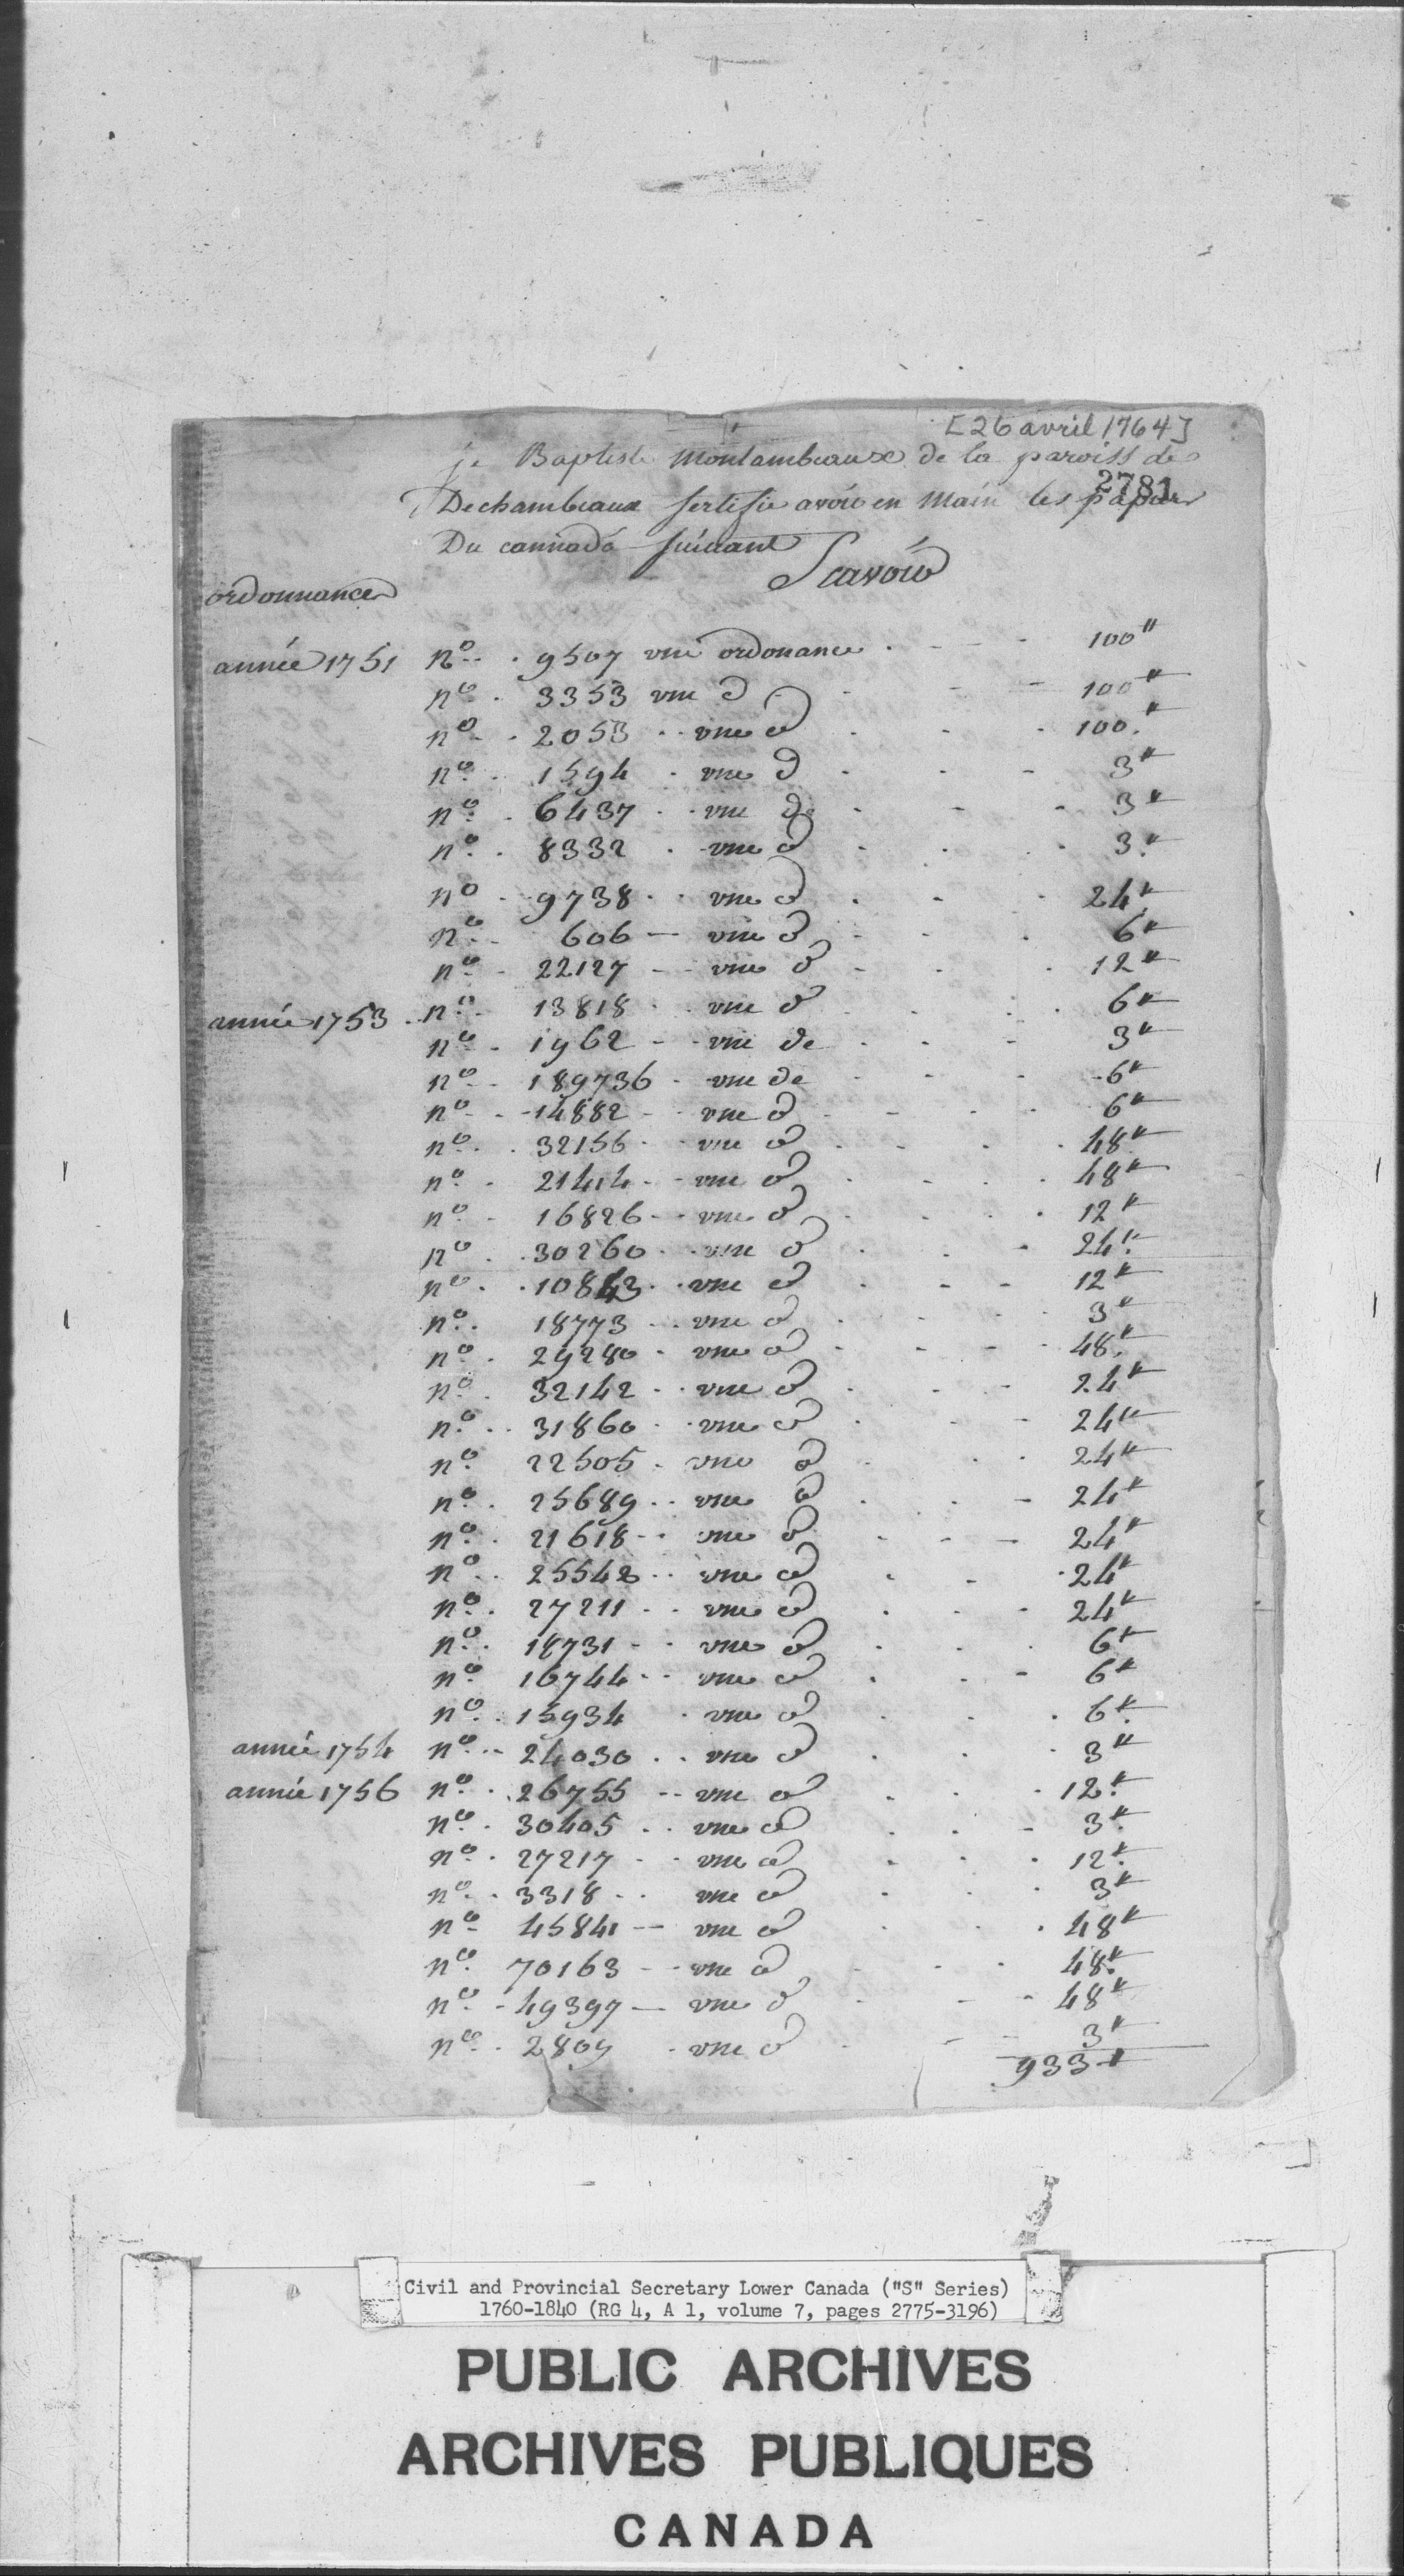 [26 avril 1764]
je Baptiste Montambeaux de la paroiss de
2781
Dechambeaux sertifie avoir en Main les papier
Du cannada suivant
Scavoir
ordonnance
année 1751 no. 9507 une ordonance 100"
no. 3353 une d 100"
no. 2053 une d 100"
no. 1594 une d 3"
no. 6437 une de 3"
no. 8332 une d 3"
no 9738 une d 24"
no. 606 une d 6"
no. 22127 une d 12"
année 1753 no. 13818 une d 6"
no. 1962 une de 3"
no. 189736 une de 6"
no. 14882 une d 6"
no. 32156 une d 48"
no. 21414 une d 48"
no. 16826 une d 12"
no. 30260 une d 24"
no. 10843 une d 12"
no. 18773 une d 3"
no. 29280 une d 48"
no. 32142 une d 24"
no. 31860 une d 24"
no. 22505 une d 24"
no. 25689 une d 24"
no. 21618 une d 24"
no. 25542 une d 24"
no. 27211 une d 24"
no. 18731 une d 6"
no. 16744 une d 6"
no. 15934 une d 6"
année 1754 no. 24030 une d 3"
année 1756 no. 26755 une d 12"
no. 30405 une d 3"
no. 27217 une d 12"
no. 3318 une d 3"
no. 45841 une d 48"
no. 70163 une d 48"
no. 49397 une d 48"
no. 2809 une d 3"
933"
Civil and Provincial Secretary Lower Canada ("S" Series)
1760-1840 (RG 4, A 1, volume 7, pages 2775-3196)
PUBLIC ARCHIVES
ARCHIVES PUBLIQUES
CANADA